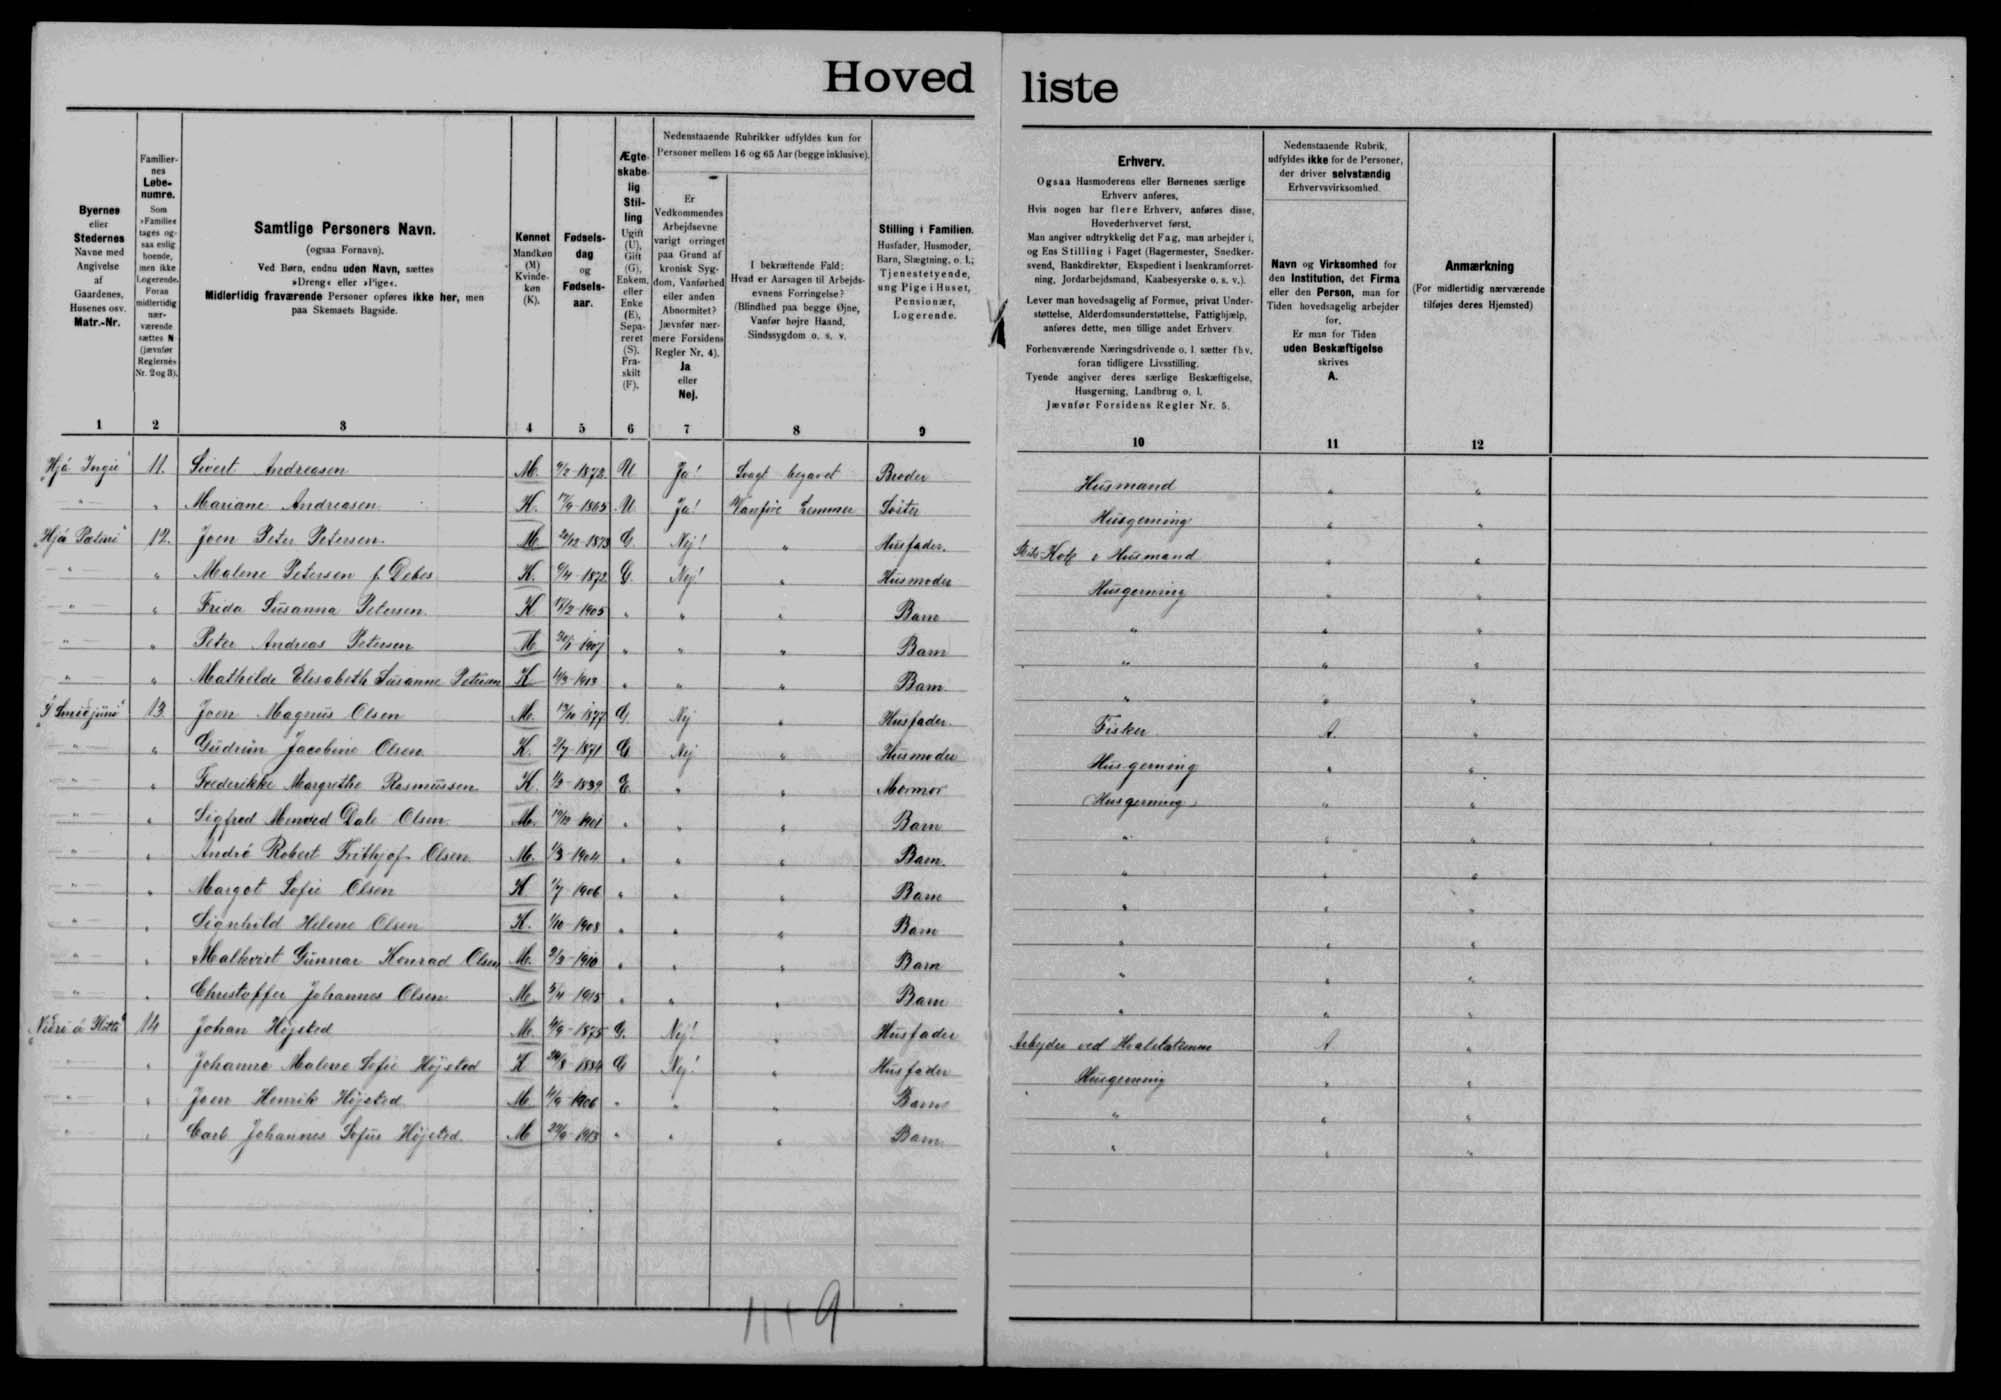 Hovedliste
Byernes eller Stedernes Navne med Angivelse af Gaardenes, Husenes osv. Matr.-Nr.
Familiernes Løbenumre. Som »Familie« tages ogsaa enlig boende, men ikke Logerende. Foran midlertidig nærværende sættes N (jævnfør Reglernes Nr. 2 og 3).
Samtlige Personers Navn. (ogsaa Fornavn). Ved Børn, endnu uden Navn, sættes »Dreng« eller »Pige«. Midlertidig fraværende Personer opføres ikke her, men paa Skemaets Bagside.
Kønnet Mandkøn (M) Kvindekøn (K).
Fødselsdag og Fødselsaar.
Ægteskabelig Stilling Ugift (U), Gift (G), Enkem. eller Enke (E), Separeret (S). Fraskilt (F).
Nedenstaaende Rubrikker udfyldes kun for Personer mellem 16 og 65 Aar (begge inklusive).
Er Vedkommendes Arbejdsevne varigt forringet paa Grund af kronisk Sygdom, Vanførhed eller anden Abnormitet? Jævnfør nærmere Forsidens Regler Nr. 4). Ja eller Nej.
I bekræftende Fald: Hvad er Aarsagen til Arbejdsevnens Forringelse? (Blindhed paa begge Øjne, Vanfør højre Haand, Sindssygdom o. s. v.
Stilling i Familien. Husfader, Husmoder, Barn, Slægtning, o. l.; Tjenestetyende, ung Pige i Huset, Pensionær, Logerende.
Erhverv. Ogsaa Husmoderens eller Børnenes særlige Erhverv anføres. Hvis nogen har flere Erhverv, anføres disse, Hovederhvervet først. Man angiver udtrykkelig det Fag, man arbejder i, og Ens Stilling i Faget (Bagermester, Snedkersvend, Bankdirektør, Ekspedient i Isenkramforretning, Jordarbejdsmand, Kaabesyerske o. s. v.).
Lever man hovedsagelig af Formue, privat Understøttelse, Alderdomsunderstøttelse, Fattighjælp, anføres dette, men tillige andet Erhverv.
Forhenværende Næringsdrivende o. l. sætter fhv. foran tidligere Livsstilling.
Tyende angiver deres særlige Beskæftigelse, Husgerning, Landbrug o. l.
Jævnfør Forsidens Regler Nr. 5.
Nedenstaaende Rubrik, udfyldes ikke for de Personer, der driver selvstændig Erhvervsvirksomhed.
Navn og Virksomhed for den Institution, det Firma eller den Person, man for Tiden hovedsagelig arbejder for. Er man for Tiden uden Beskæftigelse skrives A.
Anmærkning (For midlertidig nærværende tilføjes deres Hjemsted)
1 2 3 4 5 6 7 8 9 10 11 12
"Hjá Ingii" 11. Sivert Andreasen M. 9/2-1872 U Ja! Svagt begavet Broder Husmand " "
" " Mariane Andreasen K. 17/9-1865 U Ja! Vanføre Lemmer Søster Husgerning " "
12. Joen Peter Petersen M 1873 G. Nej! " Husfader. Kok o Husmand " "
" " Malene Petersen f. Debes K. 9/4-1872 G. Nej! " Husmoder Husgerning " "
" " Frida Susanna Petersen K 1905 " " " Barn " " "
" " Peter Andreas Petersen M 1907 " " " Barn " " "
" " Mathilde Elisabeth Susanne Petersen K 1913 " " " Barn " " "
13. Joen Magnus Olsen M. 13/10-1877 G. Nej " Husfader. Fisker A. "
" " Gudrun Jacobine Olsen K. 2/7-1871 G Nej " Husmoder Husgerning " "
" " Frederikke Margrethe Rasmussen K. 1/3-1839 E. " " Mormor (Husgerning) " "
" " Sigfred Menved Dale Olsen M. 1901 " " " Barn " " "
" " André Robert Frithjof Olsen M. 1/3-1904 " " " Barn. " " "
" " Margot Sofie Olsen K 1/7-1906 " " " Barn " " "
" " Signhild Helene Olsen K. 1/10-1908 " " " Barn " " "
" " Malkvist Gunnar Konrad Olsen M. 9/2-1910 " " " Barn " " "
" " Christoffer Johannes Olsen M. 5/4-1915 " " " Barn " " "
14 Johan Højsted M. 1875 G. Nej! " Husfader Arbejder ved A "
" " Johanne Malene Sofie Højsted K 1884 G Nej! " Husfader Husgerning " "
" " Joen Henrik Højsted M. 1906 " " " Barn " " "
" " Carl Johannes Sofus Højsted. M 1913 " " " Barn " " "
11 + 9